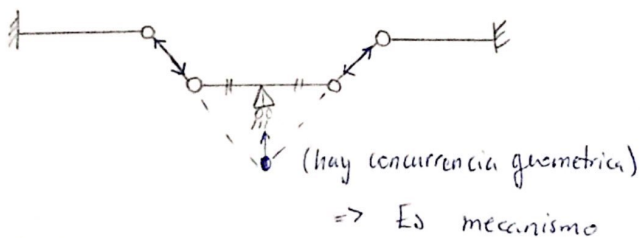 (hay concurrencia geometrica)
=> Es mecanismo